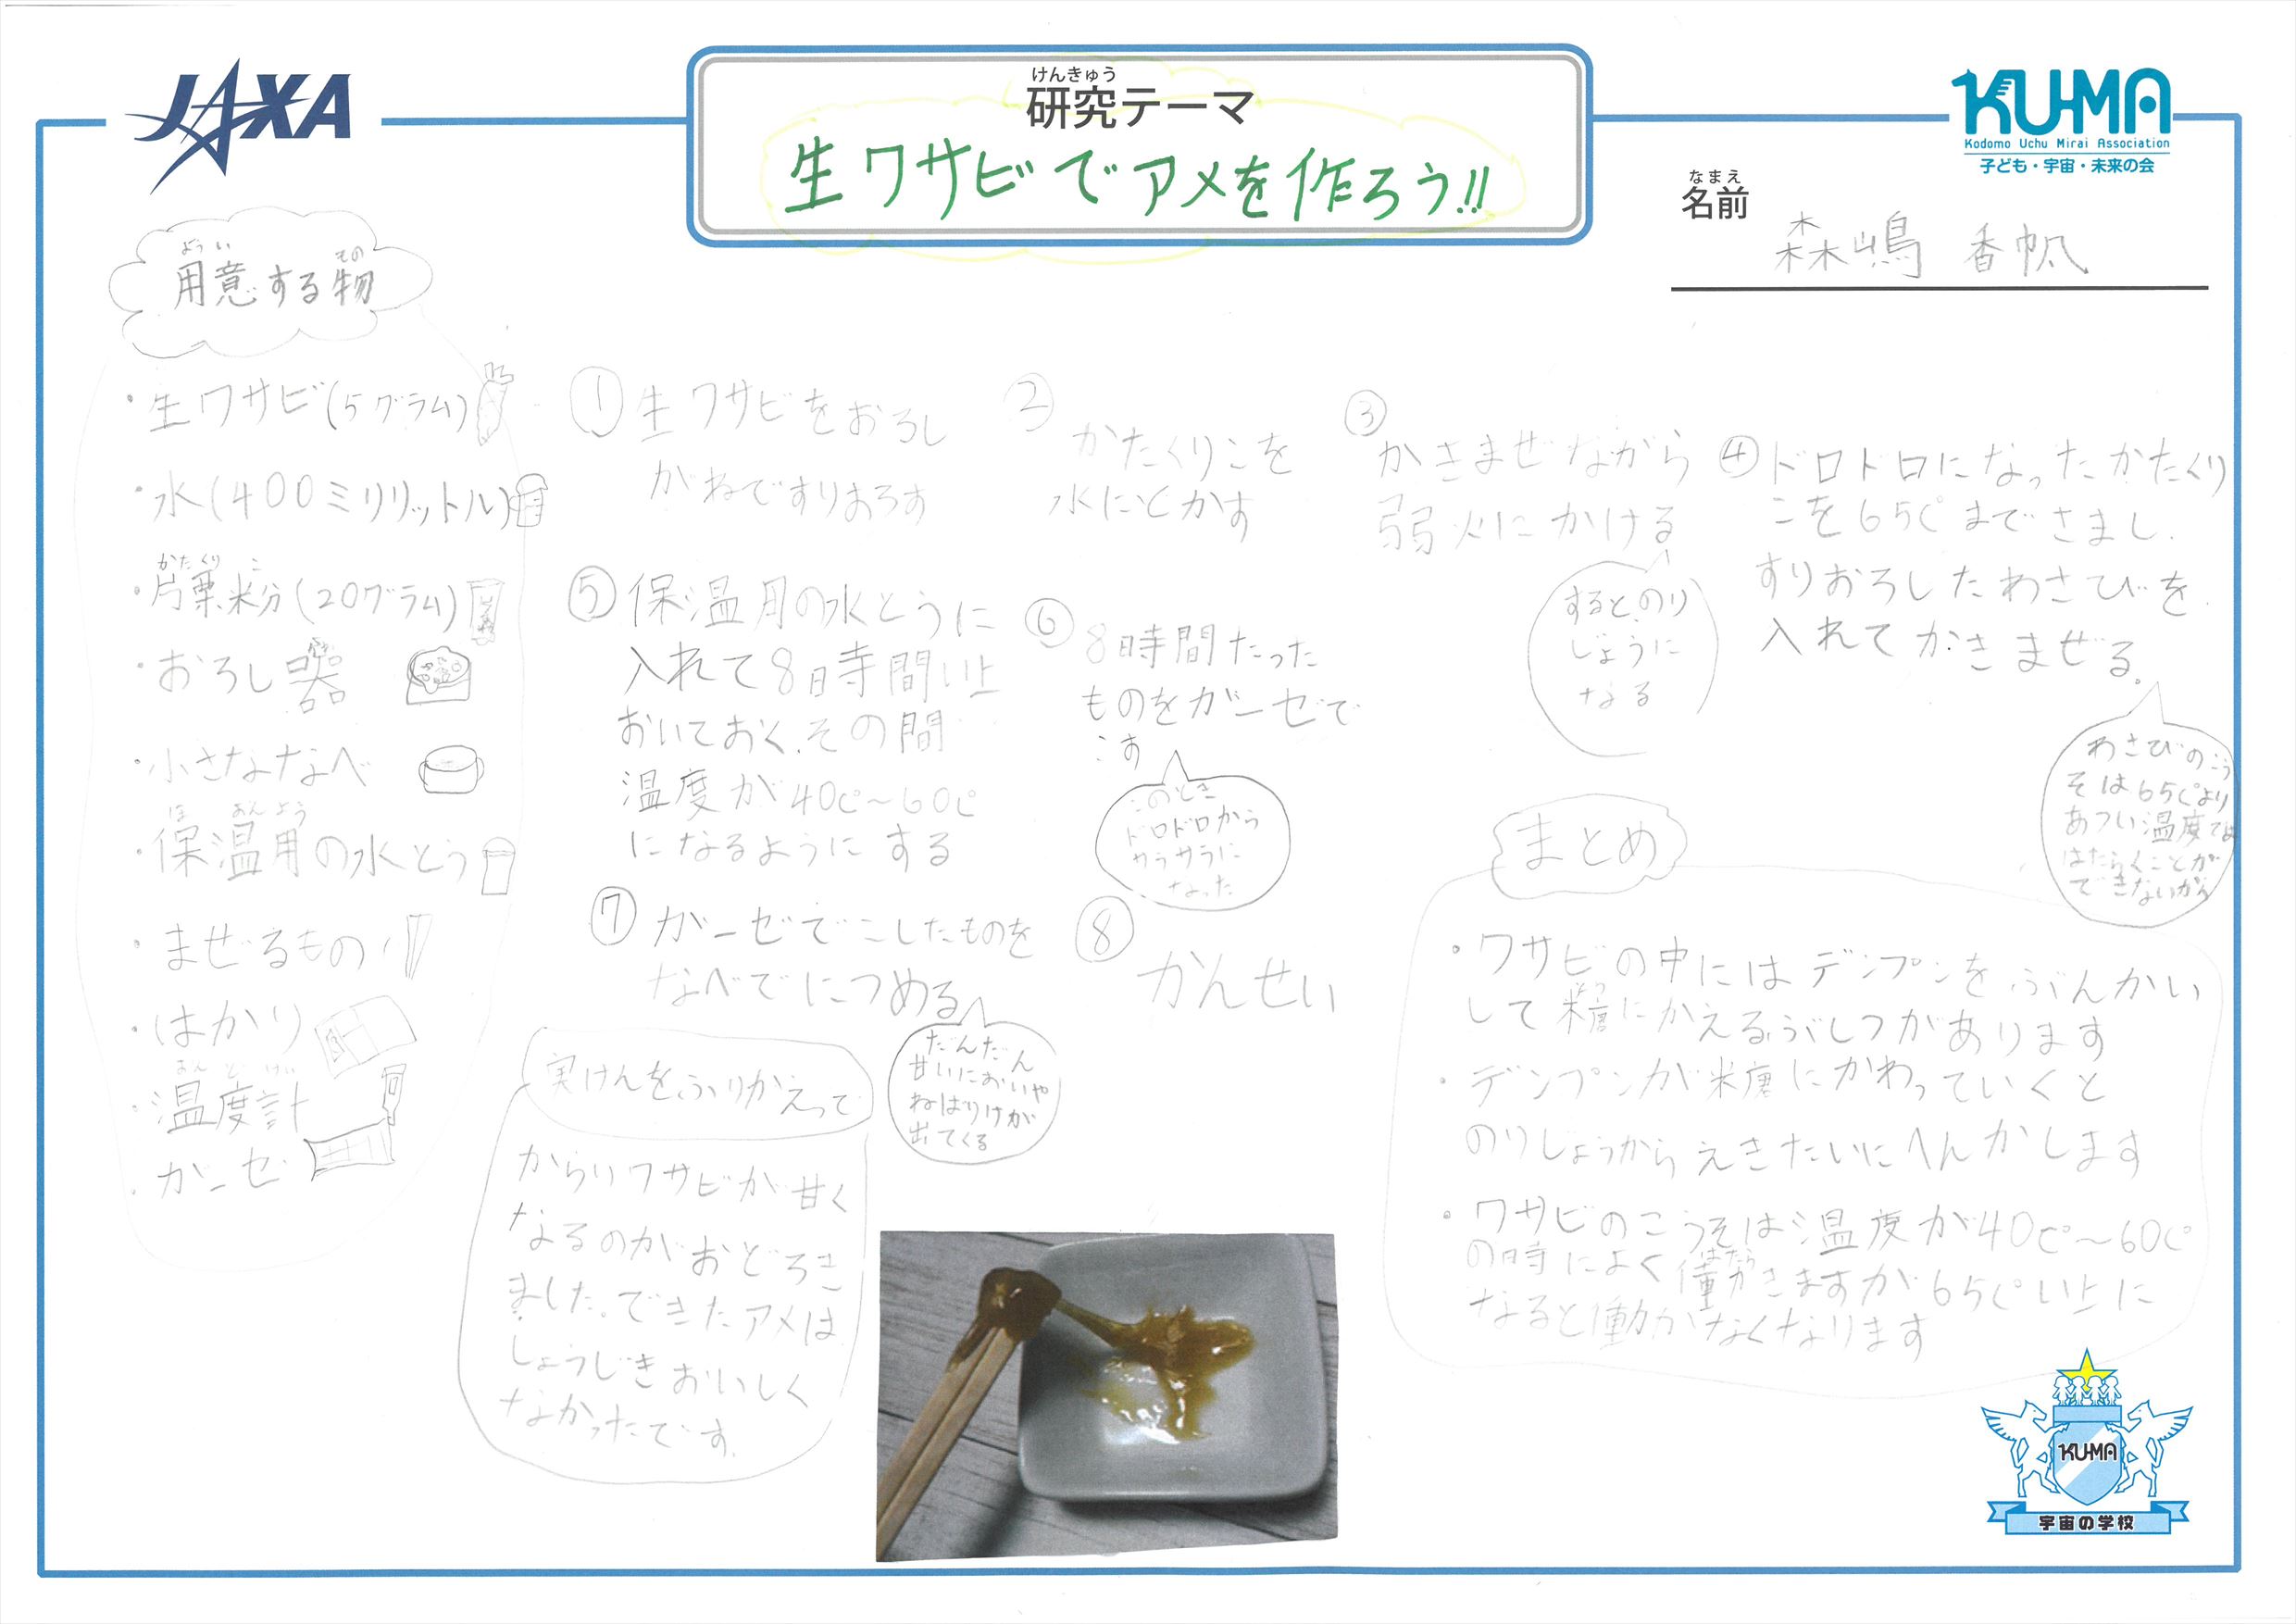 JAXA
けんきゅう
研究テーマ
生ワサビでアメを作ろう!!
KUMA
Kodomo Uchu Mirai Association
子ども・宇宙・未来の会
なまえ
名前
森嶋 香帆
ようい その
用意する物
・生ワサビ(5グラム)
・水(400ミリリットル)
かたくり こ
・片栗粉(20グラム)
・おろし器
・小さななべ
ほ おんよう
・保温用の水とう
・まぜるもの
・はかり
おん ど けい
・温度計
・ガーゼ
① 生ワサビをおろし
がねですりおろす
②
かたくりこを
水にとかす
③
かきまぜながら
弱火にかける
するとのり
じょうに
なる
④ ドロドロになったかたくり
こを65℃までさまし、
すりおろしたわさびを
入れてかきまぜる。
わさびのこう
そは65℃より
あつい温度では
はたらくことが
できないから
⑤ 保温用の水とうに
入れて8時間以上
おいておく、その間
温度が40℃〜60℃
になるようにする
⑥
8時間たった
ものをガーゼで
こす
このとき
ドロドロから
サラサラに
なった
⑦ ガーゼでこしたものを
なべでにつめる
だんだん
甘いにおいや
ねばりけが
出てくる
⑧
かんせい
実けんをふりかえって
からいワサビが甘く
なるのがおどろき
ました。できたアメは
しょうじきおいしく
なかったです。
まとめ
・ワサビの中にはデンプンをぶんかい
して糖にかえるぶしつがあります
・デンプンが糖にかわっていくと
のりじょうからえきたいにへんかします
・ワサビのこうそは温度が40℃〜60℃
の時によく働きますが65℃い上に
なると働かなくなります
KUMA
宇宙の学校